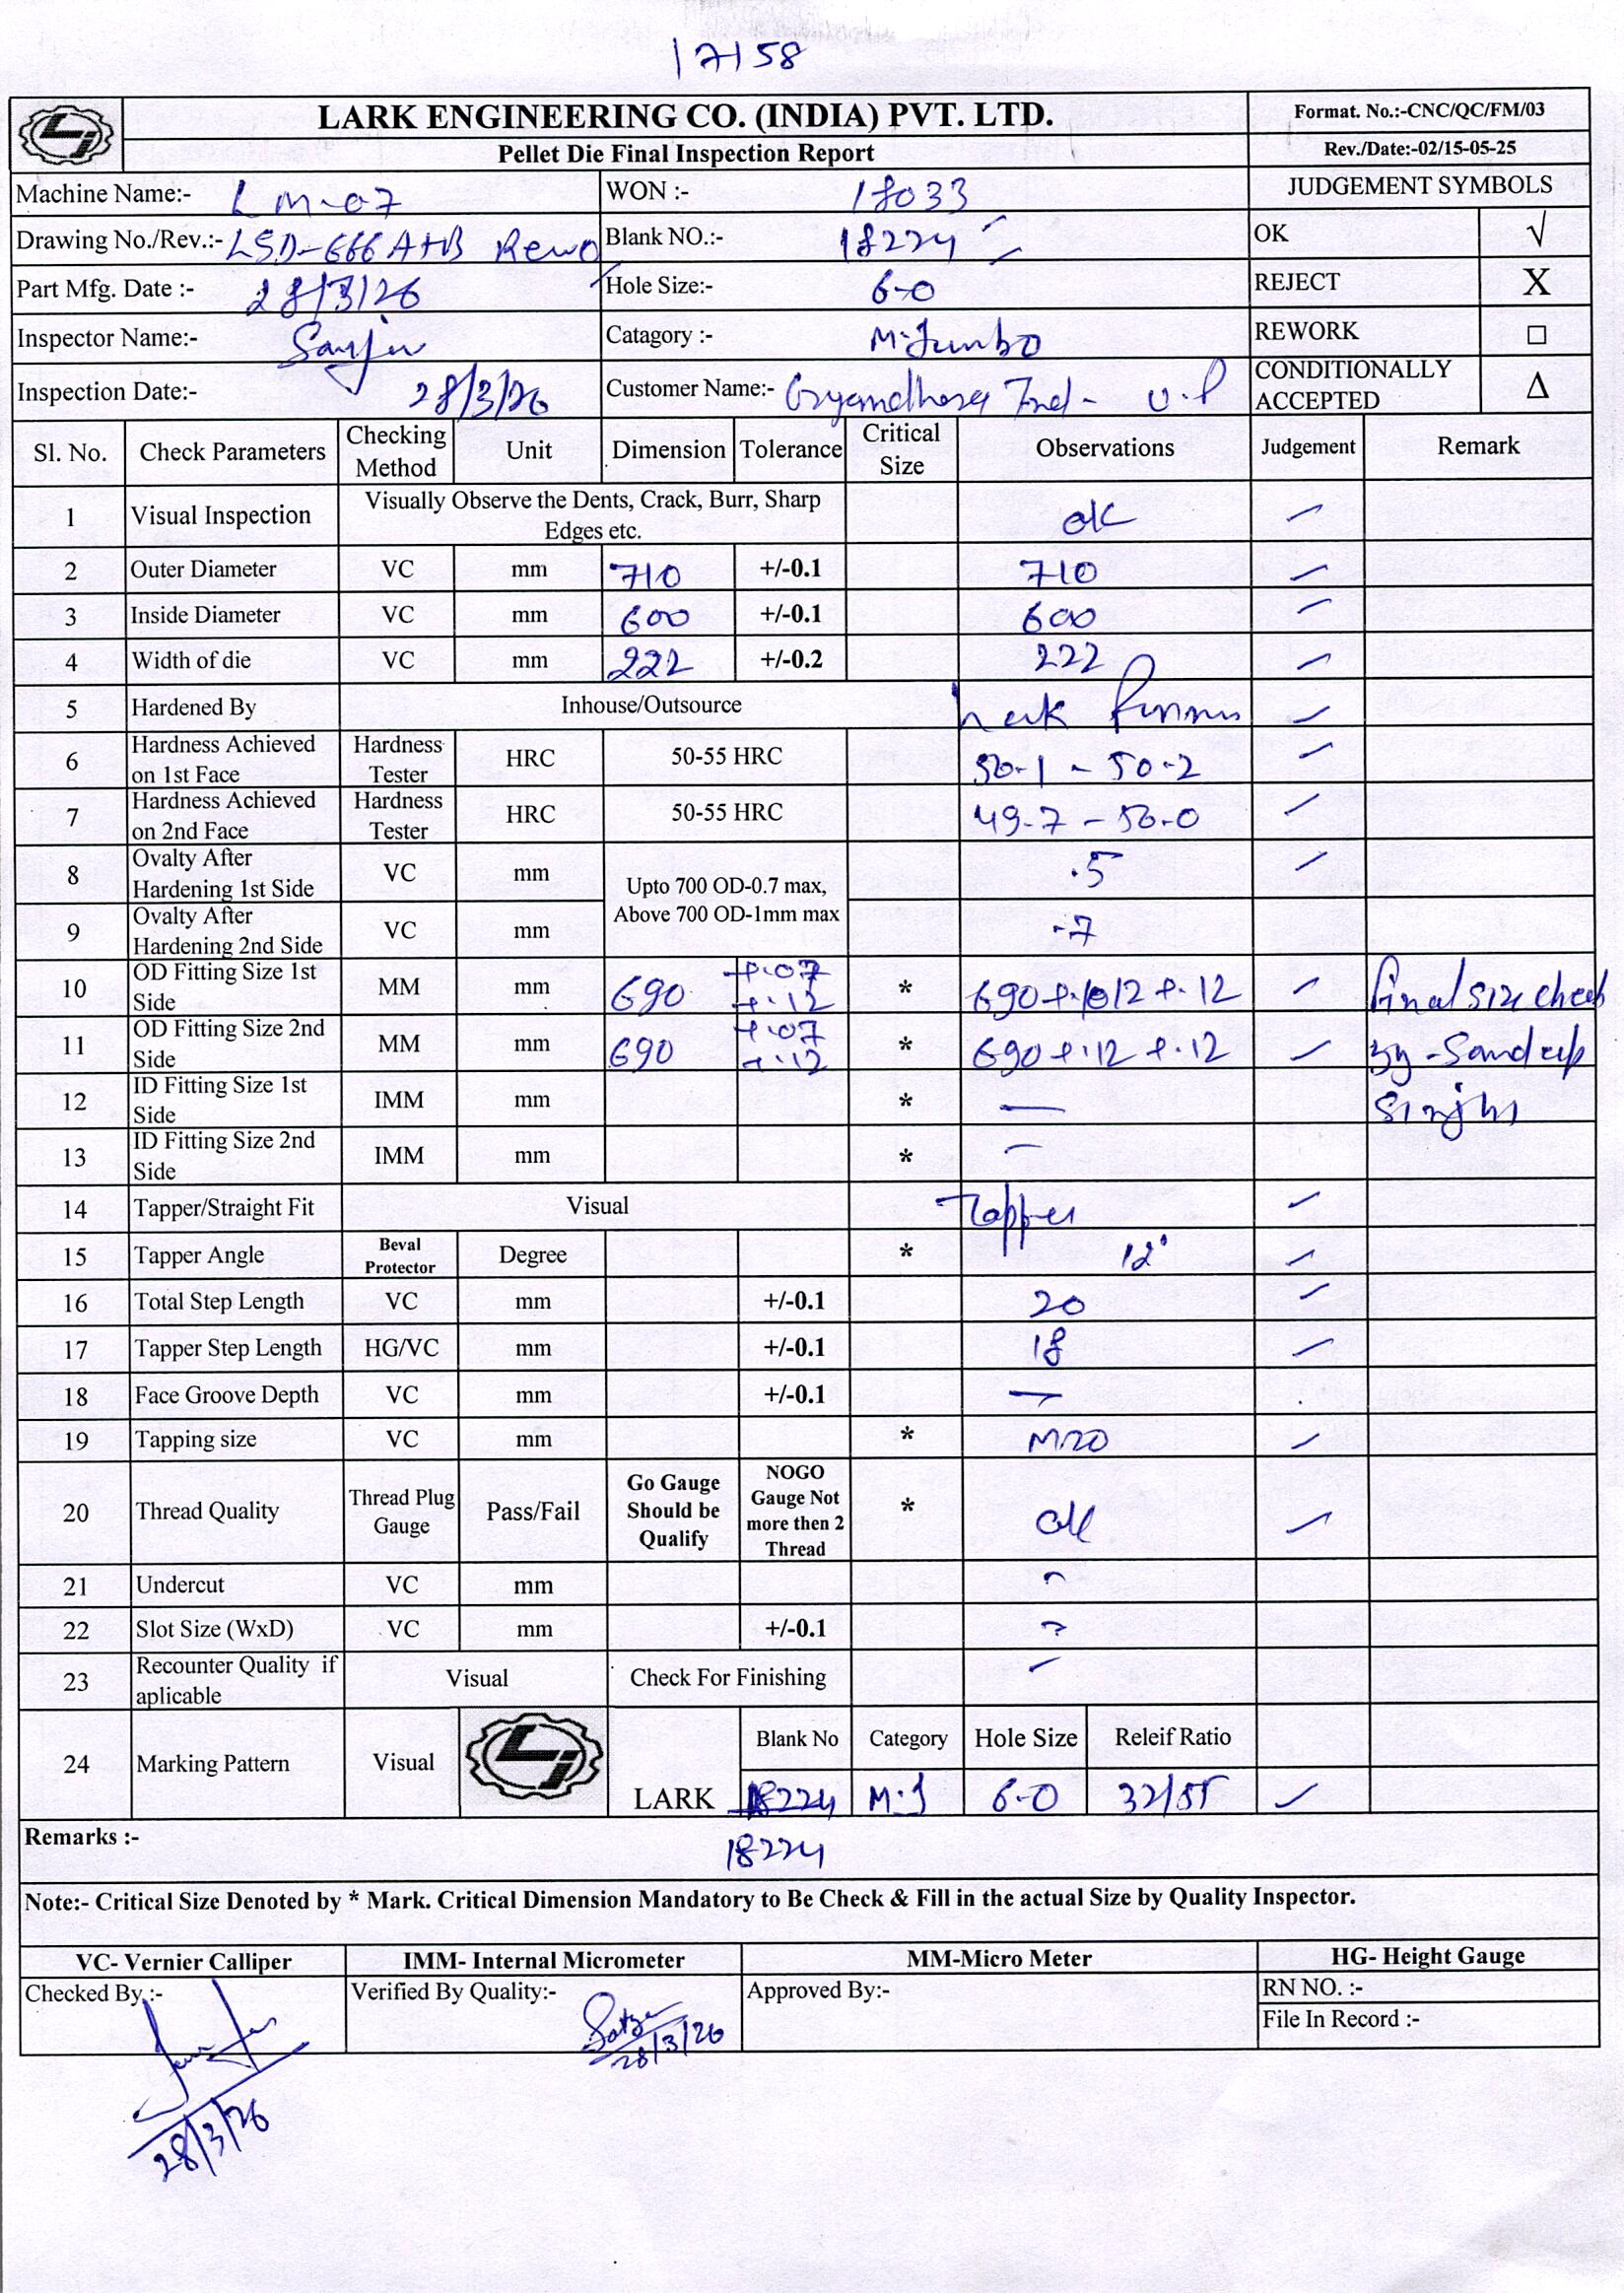 17158
LARK ENGINEERING CO. (INDIA) PVT. LTD.
Format. No.:-CNC/QC/FM/03
Pellet Die Final Inspection Report
Rev./Date:-02/15-05-25
Machine Name:- LM-07 WON :- 18033 JUDGEMENT SYMBOLS
Drawing No./Rev.:- LSD-666 A+B Rev0 Blank NO.:- 18224 OK √
Part Mfg. Date :- 28/3/26 Hole Size:- 6-0 REJECT X
Inspector Name:- Catagory :- M-Jumbo REWORK □
Inspection Date:- 28/3/26 Customer Name:- Ind- U.P CONDITIONALLY ACCEPTED Δ
Sl. No. Check Parameters Checking Method Unit Dimension Tolerance Critical Size Observations Judgement Remark
1 Visual Inspection Visually Observe the Dents, Crack, Burr, Sharp Edges etc. ok
2 Outer Diameter VC mm 710 +/-0.1 710
3 Inside Diameter VC mm 600 +/-0.1 600
4 Width of die VC mm 222 +/-0.2 222
5 Hardened By Inhouse/Outsource
6 Hardness Achieved on 1st Face Hardness Tester HRC 50-55 HRC 50-1 - 50-2
7 Hardness Achieved on 2nd Face Hardness Tester HRC 50-55 HRC 49-7 - 50-0
8 Ovalty After Hardening 1st Side VC mm Upto 700 OD-0.7 max, Above 700 OD-1mm max .5
9 Ovalty After Hardening 2nd Side VC mm .7
10 OD Fitting Size 1st Side MM mm 690 +.07 +.12 * 690 +.12 +.12 final size check
11 OD Fitting Size 2nd Side MM mm 690 +.07 +.12 * 690 +.12 +.12 by - Sandeep
12 ID Fitting Size 1st Side IMM mm * —
13 ID Fitting Size 2nd Side IMM mm * —
14 Tapper/Straight Fit Visual Tapper
15 Tapper Angle Beval Protector Degree * 12°
16 Total Step Length VC mm +/-0.1 20
17 Tapper Step Length HG/VC mm +/-0.1 18
18 Face Groove Depth VC mm +/-0.1 —
19 Tapping size VC mm * M20
20 Thread Quality Thread Plug Gauge Pass/Fail Go Gauge Should be Qualify NOGO Gauge Not more then 2 Thread * ok
21 Undercut VC mm
22 Slot Size (WxD) VC mm +/-0.1
23 Recounter Quality if aplicable Visual Check For Finishing
24 Marking Pattern Visual LARK Blank No Category Hole Size Releif Ratio
18224 M.J 6-0 32/55
Remarks :- 18224
Note:- Critical Size Denoted by * Mark. Critical Dimension Mandatory to Be Check & Fill in the actual Size by Quality Inspector.
VC- Vernier Calliper IMM- Internal Micrometer MM-Micro Meter HG- Height Gauge
Checked By :- Verified By Quality:- Approved By:- RN NO. :-
File In Record :-
28/3/26
28/3/26